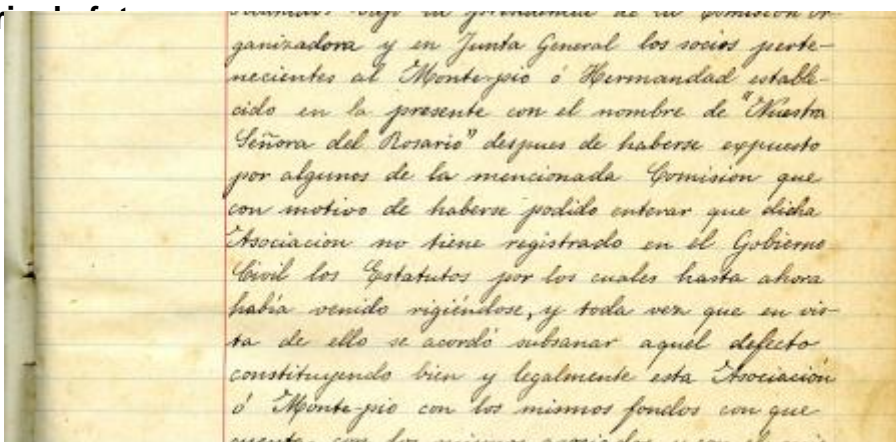 bajo la presidencia de la Comisión or-
ganizadora y en Junta General los socios perte-
necientes al Monte-pio ó Hermandad estable-
cido en la presente con el nombre de "Nuestra
Señora del Rosario" despues de haberse expuesto
por algunos de la mencionada Comision que
con motivo de haberse podido enterar que dicha
Asociacion no tiene registrado en el Gobierno
Civil los Estatutos por los cuales hasta ahora
había venido rigiéndose, y toda vez que en vis-
ta de ello se acordó subsanar aquel defecto
constituyendo bien y legalmente esta Asociación
ó Monte-pio con los mismos fondos con que
cuenta, con los mismos asociados